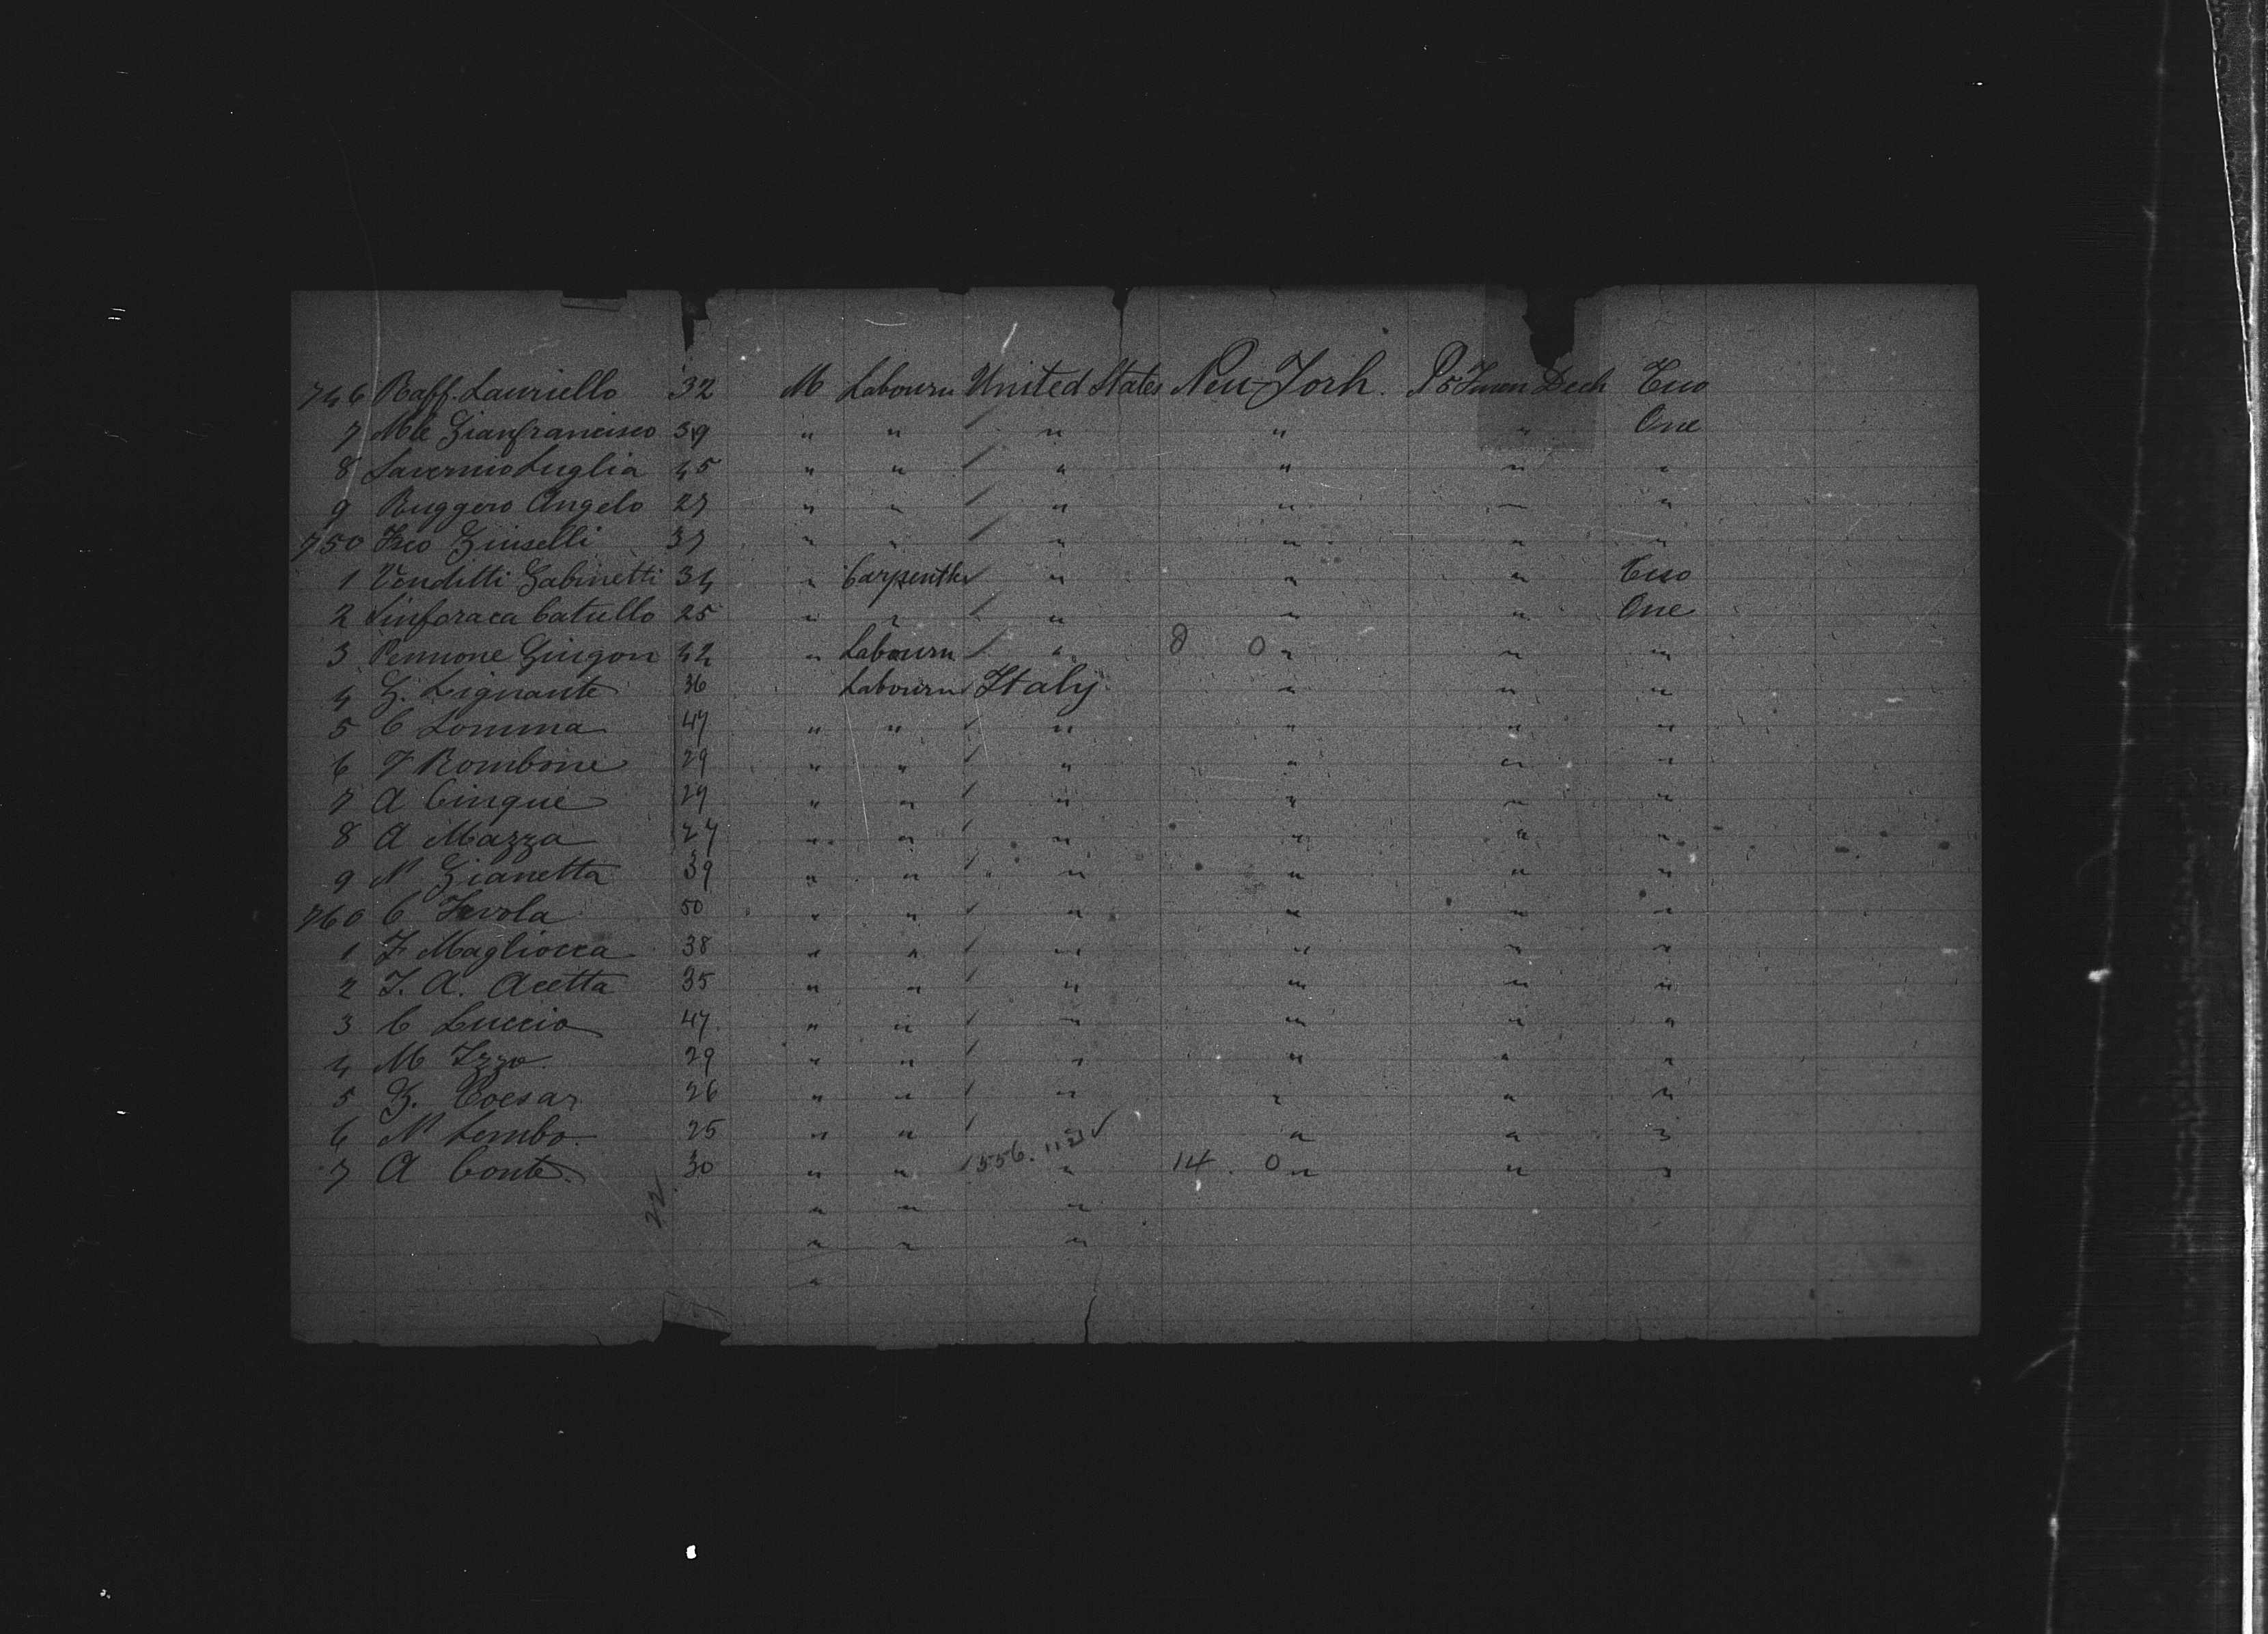 746 Raff. Lauriello 32 M Labourer United States New York. Po Tween Deck Two
7 Mle Gianfrancisco 39 " " / " " " One
8 Savernio Luglia 45 " " / " " " "
9 Ruggero Angelo 27 " " / " " " "
750 Frco Ginselli 37 " " / " " " "
1 Venditti Gabinetti 34 " Carpenter / " " " Two
2 Sinforaca Catullo 25 " " / " " " One
3 Pennone Gingon 42 " Labourer / " 8 0 " " "
4 G. Lignante 36 Labourer / Italy " " "
5 C Lomma 47 " " / " " " "
6 F Rombone 29 " " / " " " "
7 A Cinque 29 " " / " " " "
8 A Mazza 27 " " / " " " "
9 N Gianetta 39 " " / " " " "
760 C Favola 50 " " / " " " "
1 F Magliocca 38 " " / " " " "
2 F. A. Acetta 35 " " / " " " "
3 C Luccio 47 " " / " " " "
4 M Izzo 29 " " / " " " "
5 G. Coesar 26 " " / " " " "
6 N Lembo. 25 " " / " " " "
7 A Conte. 30 " " / 556. 11 21 ✓ " 14. 0 " " "
22 " " "
" " "
"